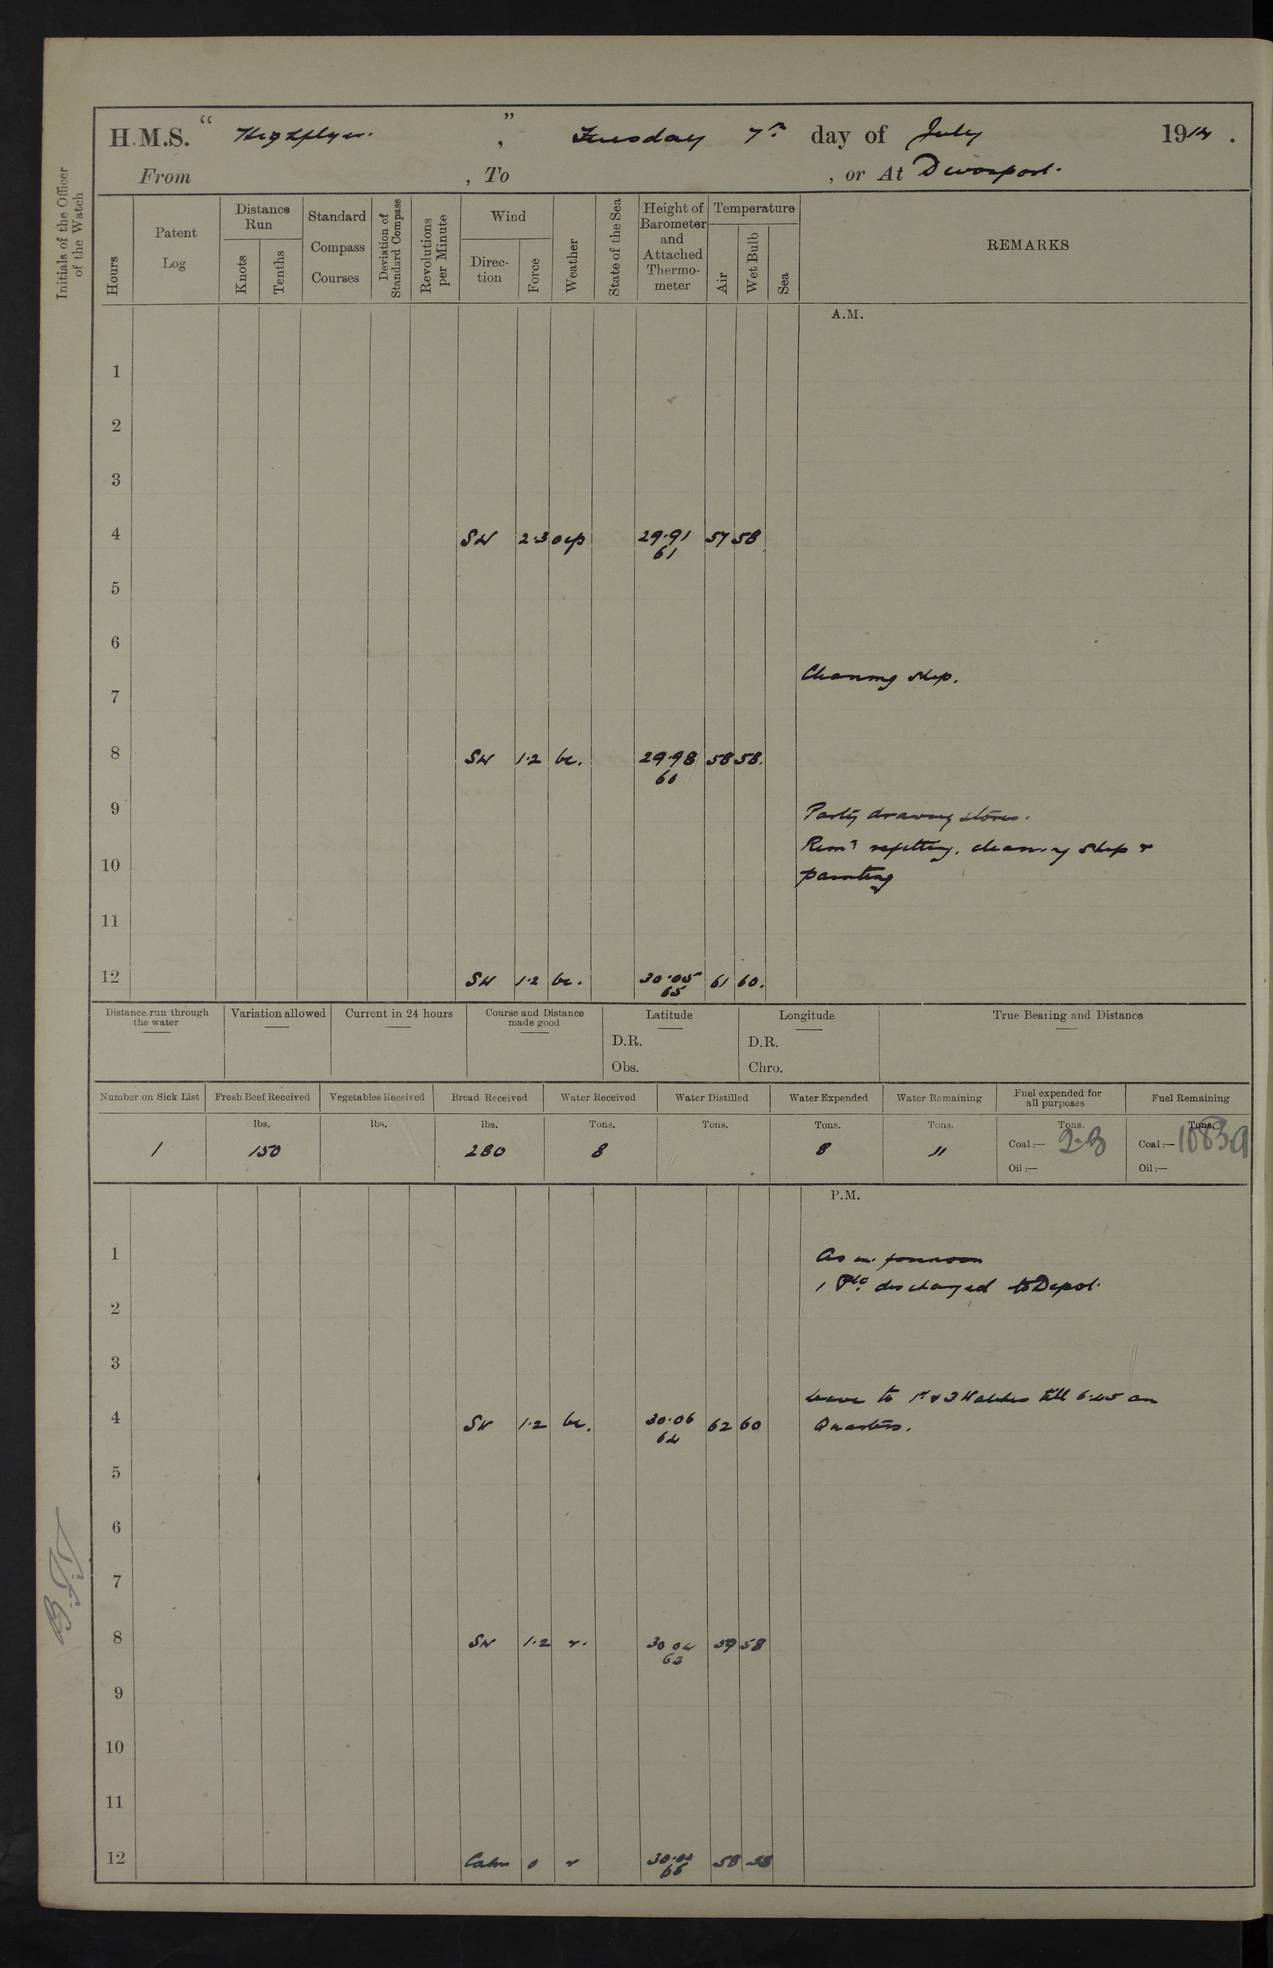 H.M.S. “ Highflyer. ” , Tuesday 7th day of July 1914 .
From , To , or At Devonport.
Initials of the Officer of the Watch
Hours
Patent Log
Distance Run
Knots
Tenths
Standard Compass Courses
Deviation of Standard Compass
Revolutions per Minute
Wind
Direc- tion
Force
Weather
State of the Sea
Height of Barometer and Attached Thermo- meter
Temperature
Air
Wet Bulb
Sea
REMARKS
A.M.
1
2
3
4 SW 2.3 ocp 29.91 61 57 58
5
6
Cleaning ship.
7
8 SW 1.2 bc. 29.98 60 58 58.
9
Party drawing stores.
Remr refitting, cleaning ship &
10
painting
11
12 SW 1.2 bc. 30.05 65 61 60.
Distance run through the water
Variation allowed
Current in 24 hours
Course and Distance made good
Latitude
D.R.
Obs.
Longitude
D.R.
Chro.
True Bearing and Distance
Number on Sick List
1
Fresh Beef Received
lbs.
150
Vegetables Received
lbs.
Bread Received
lbs.
280
Water Received
Tons.
8
Water Distilled
Tons.
Water Expended
Tons.
8
Water Remaining
Tons.
"
Fuel expended for all purposes
Tons.
Coal:—
Oil:—
Fuel Remaining
Tons.
Coal:—
Oil:—
P.M.
1
As in forenoon
1 Pte. discharged to Depot.
2
3
Leave to 1st & 3 Watches till 6.45 am
4 SW 1.2 bc. 30.06 64 62 60
Quarters.
5
6
7
8 SW 1.2 r. 30 04 63 59 58
9
10
11
12 Calm 0 r 58 58